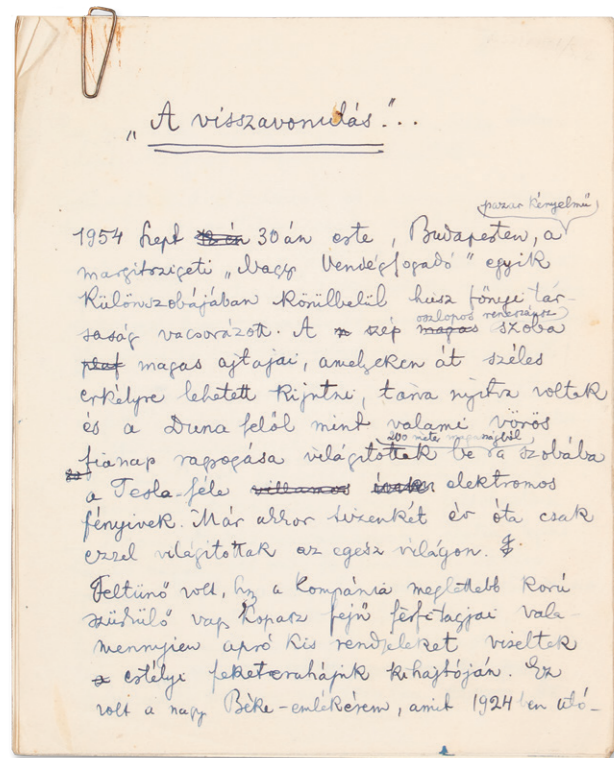 „A visszavonulás."..
pazar kényelmű
1954 Szept 30 án este, Budapesten, a
margitszigeti „Nagy Vendégfogadó" egyik
különszobájában körülbelül húsz főnyi tár-
oszlopos
saság vacsorázott. A szép magas szoba
magas ajtajai, amelyeken át széles
erkélyre lehetett kijutni, tárva nyitva voltak
és a Duna felől mint valami vörös
200 méter magasságból
fianap ragyogása világítottak be a szobába
a Tesla-féle villamos ívek elektromos
fényivek. Már akkor tizenkét év óta csak
ezzel világítottak az egész világon.
Feltünő volt, hogy a kompánia meglettebb korú
kopasz fejű férfitagjai vala-
mennyien apró kis rendjeleket viseltek
estélyi feketeruhájuk kihajtóján. Ez
volt a nagy Béke-emlékérem, amit 1924 ben utó-